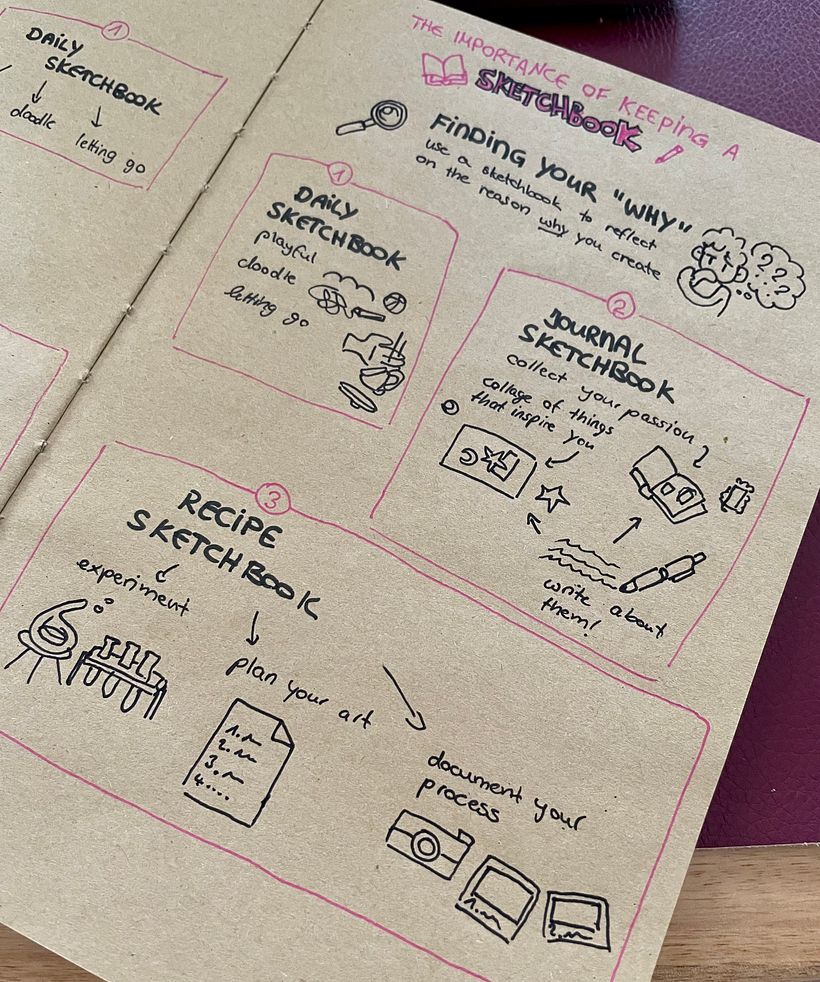 1
DAILY
SKETCHBOOK
doodle
letting go
THE IMPORTANCE OF KEEPING A
SKETCHBOOK
FINDING YOUR "WHY"
use a sketchbook to reflect
on the reason why you create
? ?
? ?
1
DAILY
SKETCHBOOK
playful
doodle
letting go
2
JOURNAL
SKETCHBOOK
collect your passion
collage of things
that inspire you
write about
them!
3
RECIPE
SKETCHBOOK
experiment
plan your art
1.
2.
3.
4....
document your
process
1.
2.